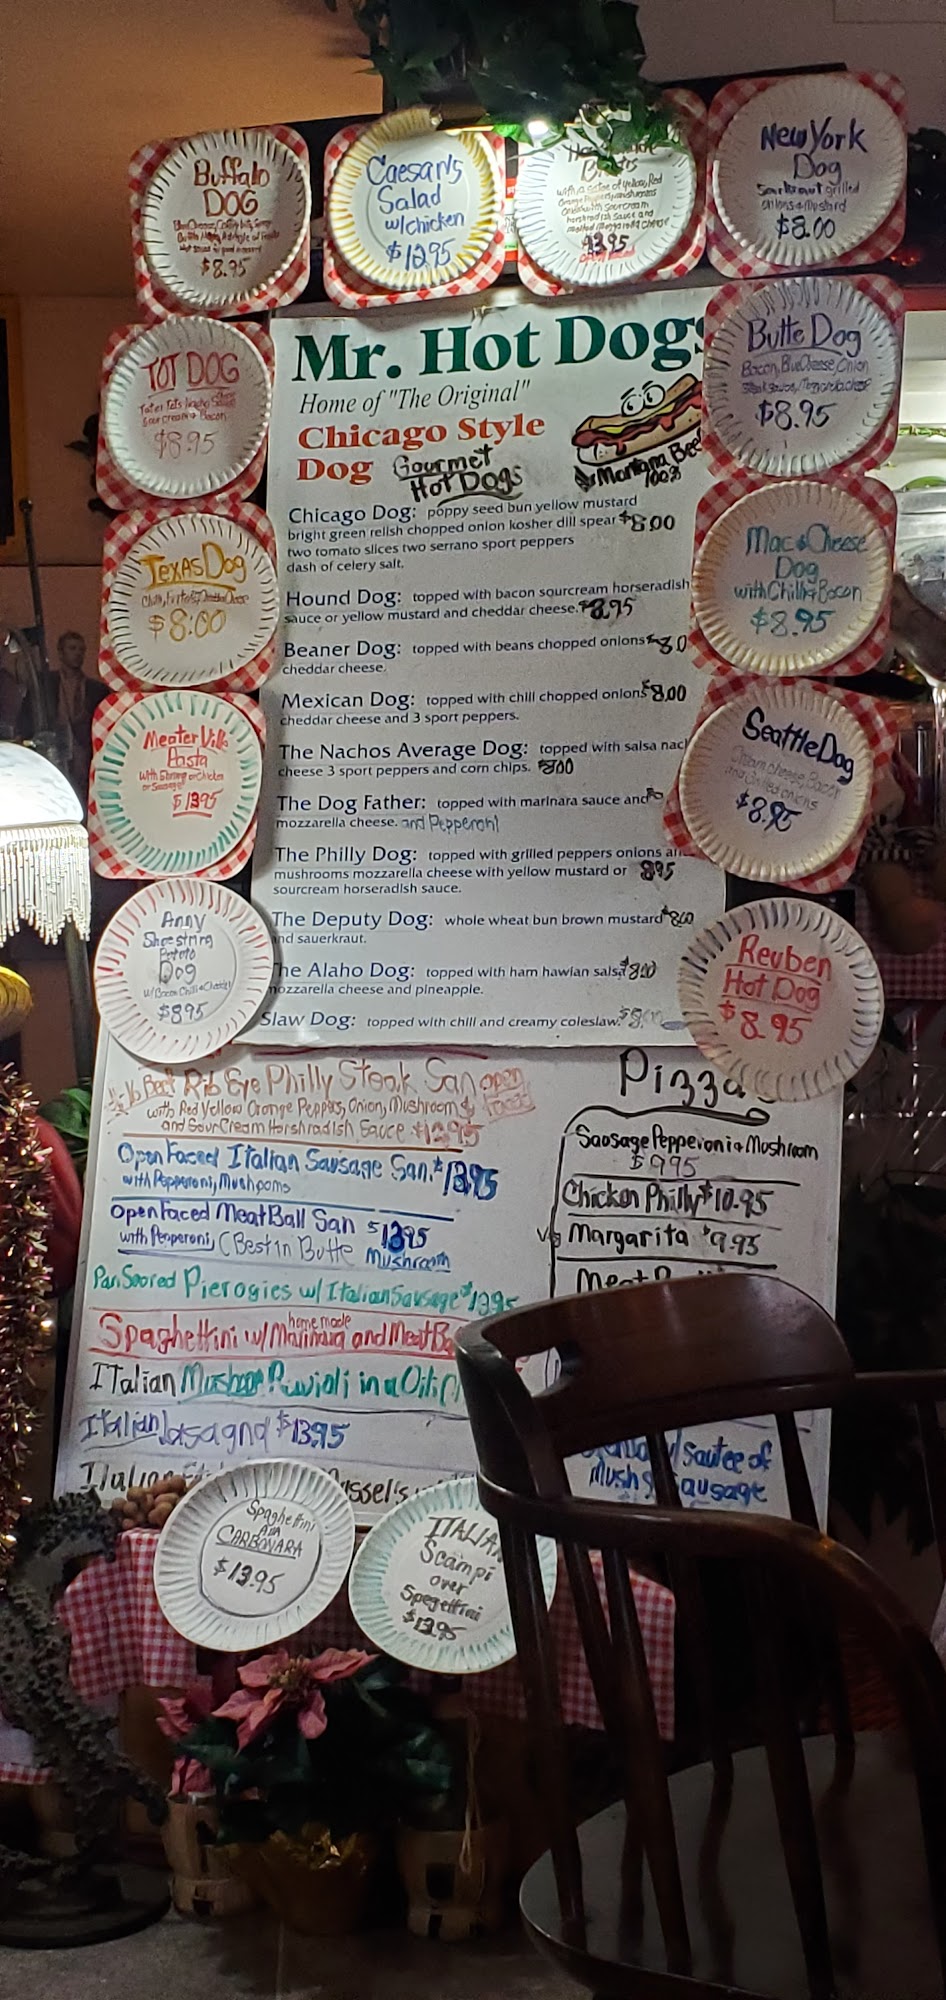 Buffalo
DOG
$8.95
Caesar's
Salad
w/chicken
$12.95
with a sautee of Yellow, Red
Orange Peppers, mushrooms
horshradish Sauce and
melted mozzarella cheese
13.95
New York
Dog
Sourkraut grilled
onions & mustard
$8.00
TOT DOG
Sour cream & Bacon
$8.95
Butte Dog
Bacon, BlueCheese, Onion
$8.95
Texas Dog
$8:00
Mac & Cheese
Dog
with Chilli & Bacon
$8.95
Meater Ville
Pasta
with Shrimp or Chicken
or Sausage
$13.95
Seattle Dog
Cream cheese, Bacon
and Grilled onions
$8.95
Anny
Shoestring
Potato
Dog
w/Bacon Chilli & Cheese
$8.95
Reuben
Hot Dog
$8.95
Mr. Hot Dogs
Home of "The Original"
Chicago Style
Dog Gourmet
Hot Dogs
Montana Bee
100%
Chicago Dog: poppy seed bun yellow mustard
bright green relish chopped onion kosher dill spear $8.00
two tomato slices two serrano sport peppers
dash of celery salt.
Hound Dog: topped with bacon sourcream horseradish
sauce or yellow mustard and cheddar cheese. $8.95
Beaner Dog: topped with beans chopped onions
cheddar cheese.
Mexican Dog: topped with chili chopped onions $8.00
cheddar cheese and 3 sport peppers.
The Nachos Average Dog: topped with salsa nac
cheese 3 sport peppers and corn chips. $8.00
The Dog Father: topped with marinara sauce and
mozzarella cheese. and Pepperoni
The Philly Dog: topped with grilled peppers onions an
mushrooms mozzarella cheese with yellow mustard or 8.95
sourcream horseradish sauce.
The Deputy Dog: whole wheat bun brown mustard $8.00
nd sauerkraut.
he Alaho Dog: topped with ham hawian salsa $8.00
ozzarella cheese and pineapple.
Slaw Dog: topped with chili and creamy coleslaw.
Rib Eye Philly Steak San open
with Red Yellow Orange Peppers, Onion, Mushroom & faced
and Sour Cream Horshradish Sauce $13.95
Open Faced Italian Sausage San. $13.95
with Pepperoni, Mushrooms
open Faced Meat Ball San $13.95
with Pepperoni, (Best in Butte Mushroom
Pan Seared Pierogies w/ Italian Sausage $13.95
home made
Spaghettini w/ Marinara and MeatBa
Italian Mushroom Ravioli in a
Italian lasagna $13.95
Italian
ssel's
Pizza
Sausage Pepperoni & Mushroom
$9.95
Chicken Philly $10.95
Margarita $9.95
Meat
sautee of
Mush
ausage
Spaghettini
Ala
CARBONARA
$13.95
ITALIA
Scampi
over
Spegettini
$13.95